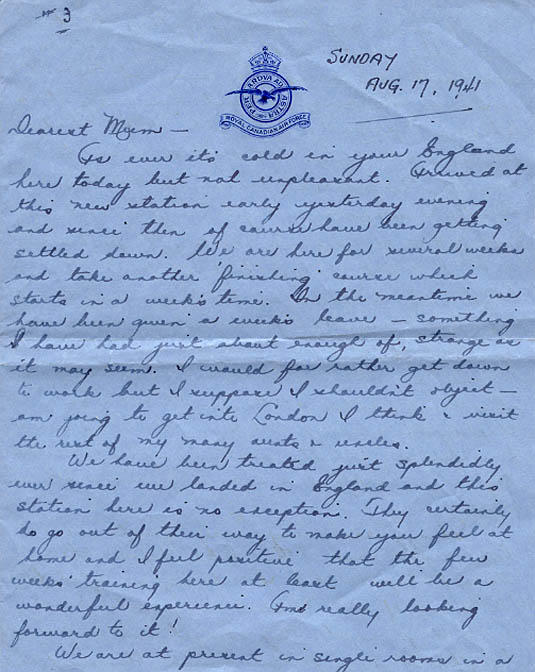 # 3
PER ARDVA AD ASTRA
ROYAL CANADIAN AIR FORCE
SUNDAY
AUG. 17, 1941
Dearest Mum —
As ever it's cold in your England
here today but not unpleasant. Arrived at
this new station early yesterday evening
and since then of course have been getting
settled down. We are here for several weeks
and take another finishing course which
starts in a week's time. In the meantime we
have been given a week's leave — something
I have had just about enough of, strange as
it may seem. I would far rather get down
to work but I suppose I shouldn't object —
am going to get into London I think & visit
the rest of my many aunts & uncles.
We have been treated just splendidly
ever since we landed in England and this
station here is no exception. They certainly
do go out of their way to make you feel at
home and I feel positive that the few
weeks' training here at least will be a
wonderful experience. Am really looking
forward to it!
We are at present in single rooms in a